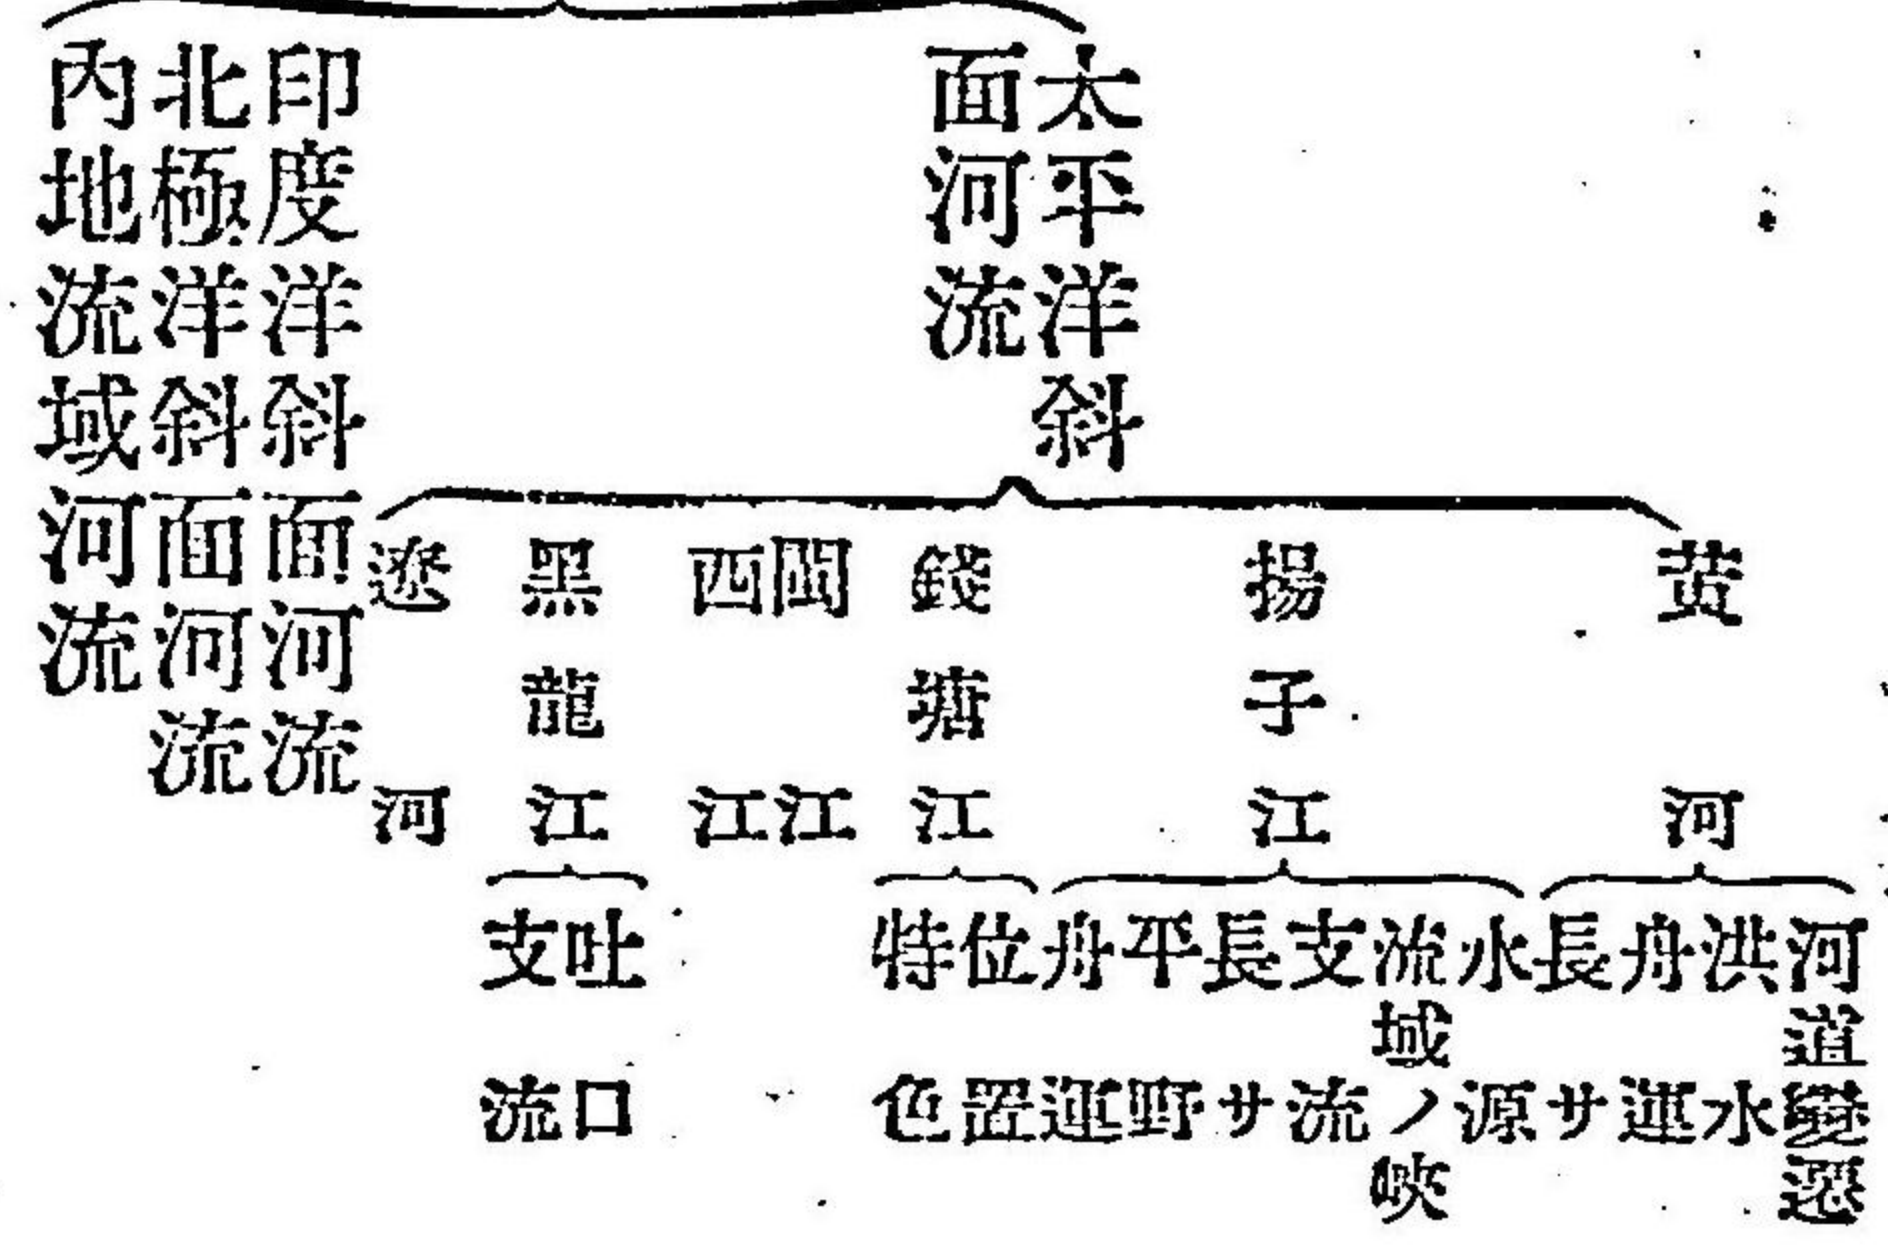 太平洋斜
面河流
黄河
河道變遷
洪水
舟運
長サ
揚子江
水源
流域ノ峽
支流
長サ
平野
舟運
錢塘江
位置
特色
閩江
西江
黑龍江
吐口
支流
遼河
印度洋斜面河流
北極洋斜面河流
內地流域河流